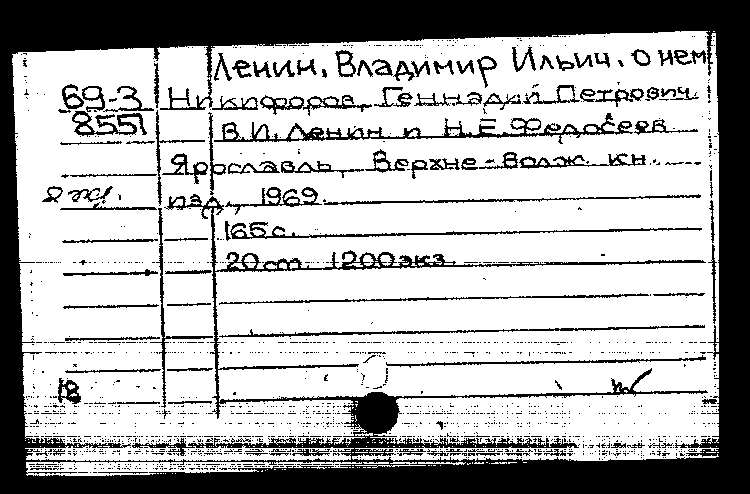 Ленин, Владимир Ильич. о нем
69-3 Никифоров, Геннадий Петрович.
8551 В.И. Ленин и Н.Е. Федосеев
Ярославль, Верхне-Волж. кн.
изд., 1969.
165 с.
20 см. 1200 экз.
18